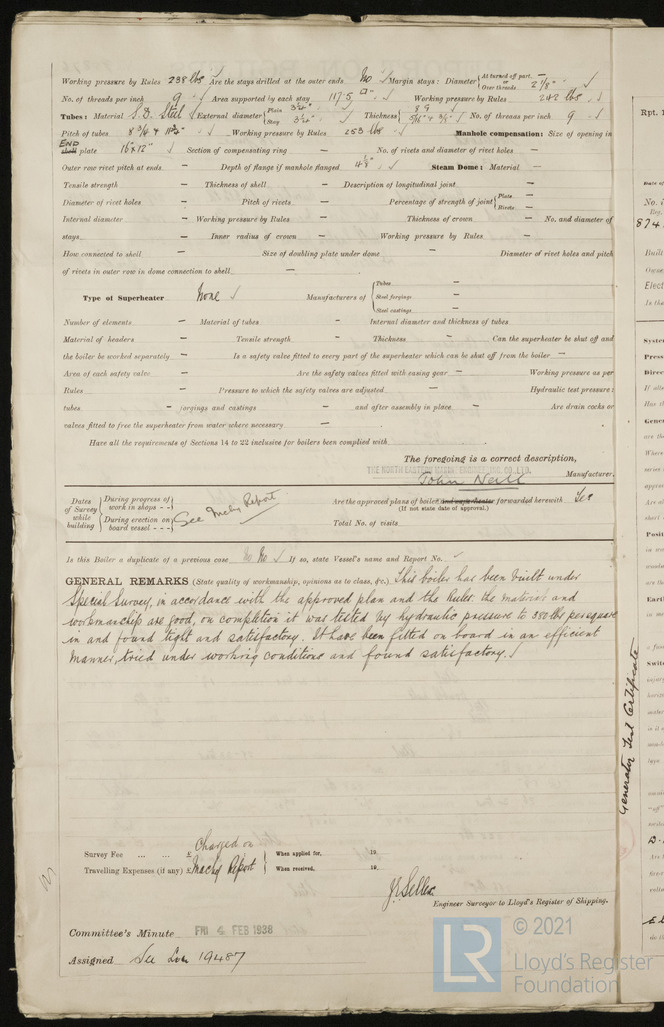 Working pressure by Rules 238 lbs Are the stays drilled at the outer ends No Margin stays: Diameter { At turned off part, — Over threads 2 1/8"
No. of threads per inch 9 Area supported by each stay 117.5 Working pressure by Rules 242 lbs
Tubes: Material S.D. Steel External diameter { Plain 3 1/4" Stay 3 1/4" Thickness { 8 G 5/16" & 3/8" No. of threads per inch 9
Pitch of tubes Working pressure by Rules 253 lbs Manhole compensation: Size of opening in
END shell plate 16"x12" Section of compensating ring — No. of rivets and diameter of rivet holes —
Outer row rivet pitch at ends — Depth of flange if manhole flanged 4 1/8" Steam Dome: Material —
Tensile strength — Thickness of shell — Description of longitudinal joint —
Diameter of rivet holes — Pitch of rivets — Percentage of strength of joint { Plate — Rivets —
Internal diameter — Working pressure by Rules — Thickness of crown — No. and diameter of
stays — Inner radius of crown — Working pressure by Rules —
How connected to shell — Size of doubling plate under dome — Diameter of rivet holes and pitch
of rivets in outer row in dome connection to shell —
Type of Superheater None Manufacturers of { Tubes — Steel forgings — Steel castings —
Number of elements — Material of tubes — Internal diameter and thickness of tubes
Material of headers — Tensile strength — Thickness — Can the superheater be shut off and
the boiler be worked separately — Is a safety valve fitted to every part of the superheater which can be shut off from the boiler —
Area of each safety valve — Are the safety valves fitted with easing gear — Working pressure as per
Rules — Pressure to which the safety valves are adjusted — Hydraulic test pressure:
tubes — forgings and castings — and after assembly in place — Are drain cocks or
valves fitted to free the superheater from water where necessary —
Have all the requirements of Sections 14 to 22 inclusive for boilers been complied with
The foregoing is a correct description,
THE NORTH EASTERN MARINE ENGINEERING CO. LTD.
John Neill Manufacturer.
Dates of Survey while building { During progress of work in shops - - During erection on board vessel - - - } See Mchy Report
Are the approved plans of boiler and superheater forwarded herewith Yes
(If not state date of approval.)
Total No. of visits
Is this Boiler a duplicate of a previous case No If so, state Vessel's name and Report No.
GENERAL REMARKS (State quality of workmanship, opinions as to class, &c.) This boiler has been built under
Special Survey, in accordance with the approved plan and the Rules. the materials and
workmanship are good, on completion it was tested by hydraulic pressure to 380 lbs per square
in and found tight and satisfactory. It have been fitted on board in an efficient
manner, tried under working conditions and found satisfactory.
Survey Fee ... ... £ Charged on When applied for, 19
Travelling Expenses (if any) £ Machy Report When received, 19
Engineer Surveyor to Lloyd's Register of Shipping.
Committee's Minute FRI 4 FEB 1938
Assigned See 19487
Generator Test Certificate
Rpt. 1
874
© 2021
LR
Lloyd's Register
Foundation